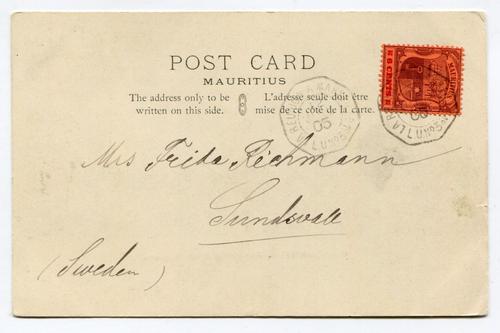 POST CARD
MAURITIUS
The address only to be
written on this side.
L'adresse seule doit être
mise de ce côté de la carte.
6 CENTS 6
MAURITIUS
05
Mrs Frida Richmann
Sundsvall
(Sweden)